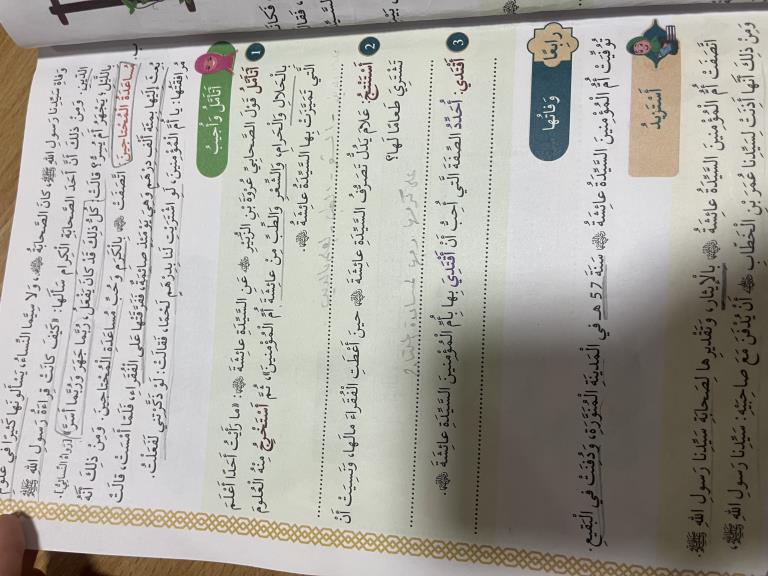 وَفاةِ سَيِّدِنا رَسولِ اللهِ ﷺ، كانَ الصَّحابَةُ ﷺ، وَلا سِيَّما النِّساءُ، يَسْأَلونَها كَثيرًا في عُلومِ
الدّينِ. وَمِنْ ذلِكَ أَنَّ أَحَدَ الصَّحابَةِ الْكِرامِ سَأَلَها: «كَيْفَ كانَتْ قِراءَةُ رَسولِ اللهِ ﷺ
بِاللَّيْلِ، يَجْهَرُ أَمْ يُسِرُّ؟ قالَتْ: كُلُّ ذلِكَ قَدْ كانَ يَفْعَلُ، رُبَّما جَهَرَ وَرُبَّما أَسَرَّ» [رَواهُ النَّسائِيُّ].
ب
مُساعَدَةُ الْمُحْتاجينَ: اتَّصَفَتْ بِالْكَرَمِ وَحُبِّ مُساعَدَةِ الْمُحْتاجينَ. وَمِنْ ذلِكَ أَنَّهُ
بُعِثَ إِلَيْها بِمِئَةِ أَلْفِ دِرْهَمٍ وَهِيَ يَوْمَئِذٍ صائِمَةٌ، فَفَرَّقَتْها عَلى الْفُقَراءِ، فَلَمّا أَمْسَتْ، قالَتْ
مُرافِقَتُها: يا أُمَّ الْمُؤْمِنينَ، لَوِ اشْتَرَيْتِ لَنا بِدِرْهَمٍ لَحْمًا، فَقالَتْ: لَوْ ذَكَّرْتِني لَفَعَلْتُ.
أَتَأَمَّلُ وَأُجيبُ
1 أَتَأَمَّلُ قَوْلَ الصَّحابِيِّ عُرْوَةَ بْنِ الزُّبَيْرِ عَنِ السَّيِّدَةِ عائِشَةَ: «ما رَأَيْتُ أَحَدًا أَعْلَمَ
بِالْحَلالِ وَالْحَرامِ، وَالشِّعْرِ وَالطِّبِّ مِنْ عائِشَةَ أُمِّ الْمُؤْمِنينَ»، ثُمَّ أَسْتَخْرِجُ مِنْهُ الْعُلومَ
الَّتي تَمَيَّزَتْ بِها السَّيِّدَةُ عائِشَةُ.
2 أَسْتَنْتِجُ: عَلامَ يَدُلُّ تَصَرُّفُ السَّيِّدَةِ عائِشَةَ حينَ أَعْطَتِ الْفُقَراءَ مالَها، وَنَسِيَتْ أَنْ
تَشْتَرِيَ طَعامًا لَها؟
3 أَقْتَدي: أُحَدِّدُ الصِّفَةَ الَّتي أُحِبُّ أَنْ أَقْتَدِيَ بِها بِأُمِّ الْمُؤْمِنينَ السَّيِّدَةِ عائِشَةَ.
رابِعًا
وَفاتُها
تُوُفِّيَتْ أُمُّ الْمُؤْمِنينَ السَّيِّدَةُ عائِشَةُ سَنَةَ 57 هـ في الْمَدينَةِ الْمُنَوَّرَةِ، وَدُفِنَتْ في الْبَقيعِ.
أَسْتَزيدُ
اتَّصَفَتْ أُمُّ الْمُؤْمِنينَ السَّيِّدَةُ عائِشَةُ بِالْإيثارِ، وَتَقْديرِها لِصَحابَةِ سَيِّدِنا رَسولِ اللهِ ﷺ.
وَمِنْ ذلِكَ أَنَّها أَذِنَتْ لِسَيِّدِنا عُمَرَ بْنِ الْخَطّابِ أَنْ يُدْفَنَ مَعَ صاحِبَيْهِ: سَيِّدِنا رَسولِ اللهِ ﷺ،